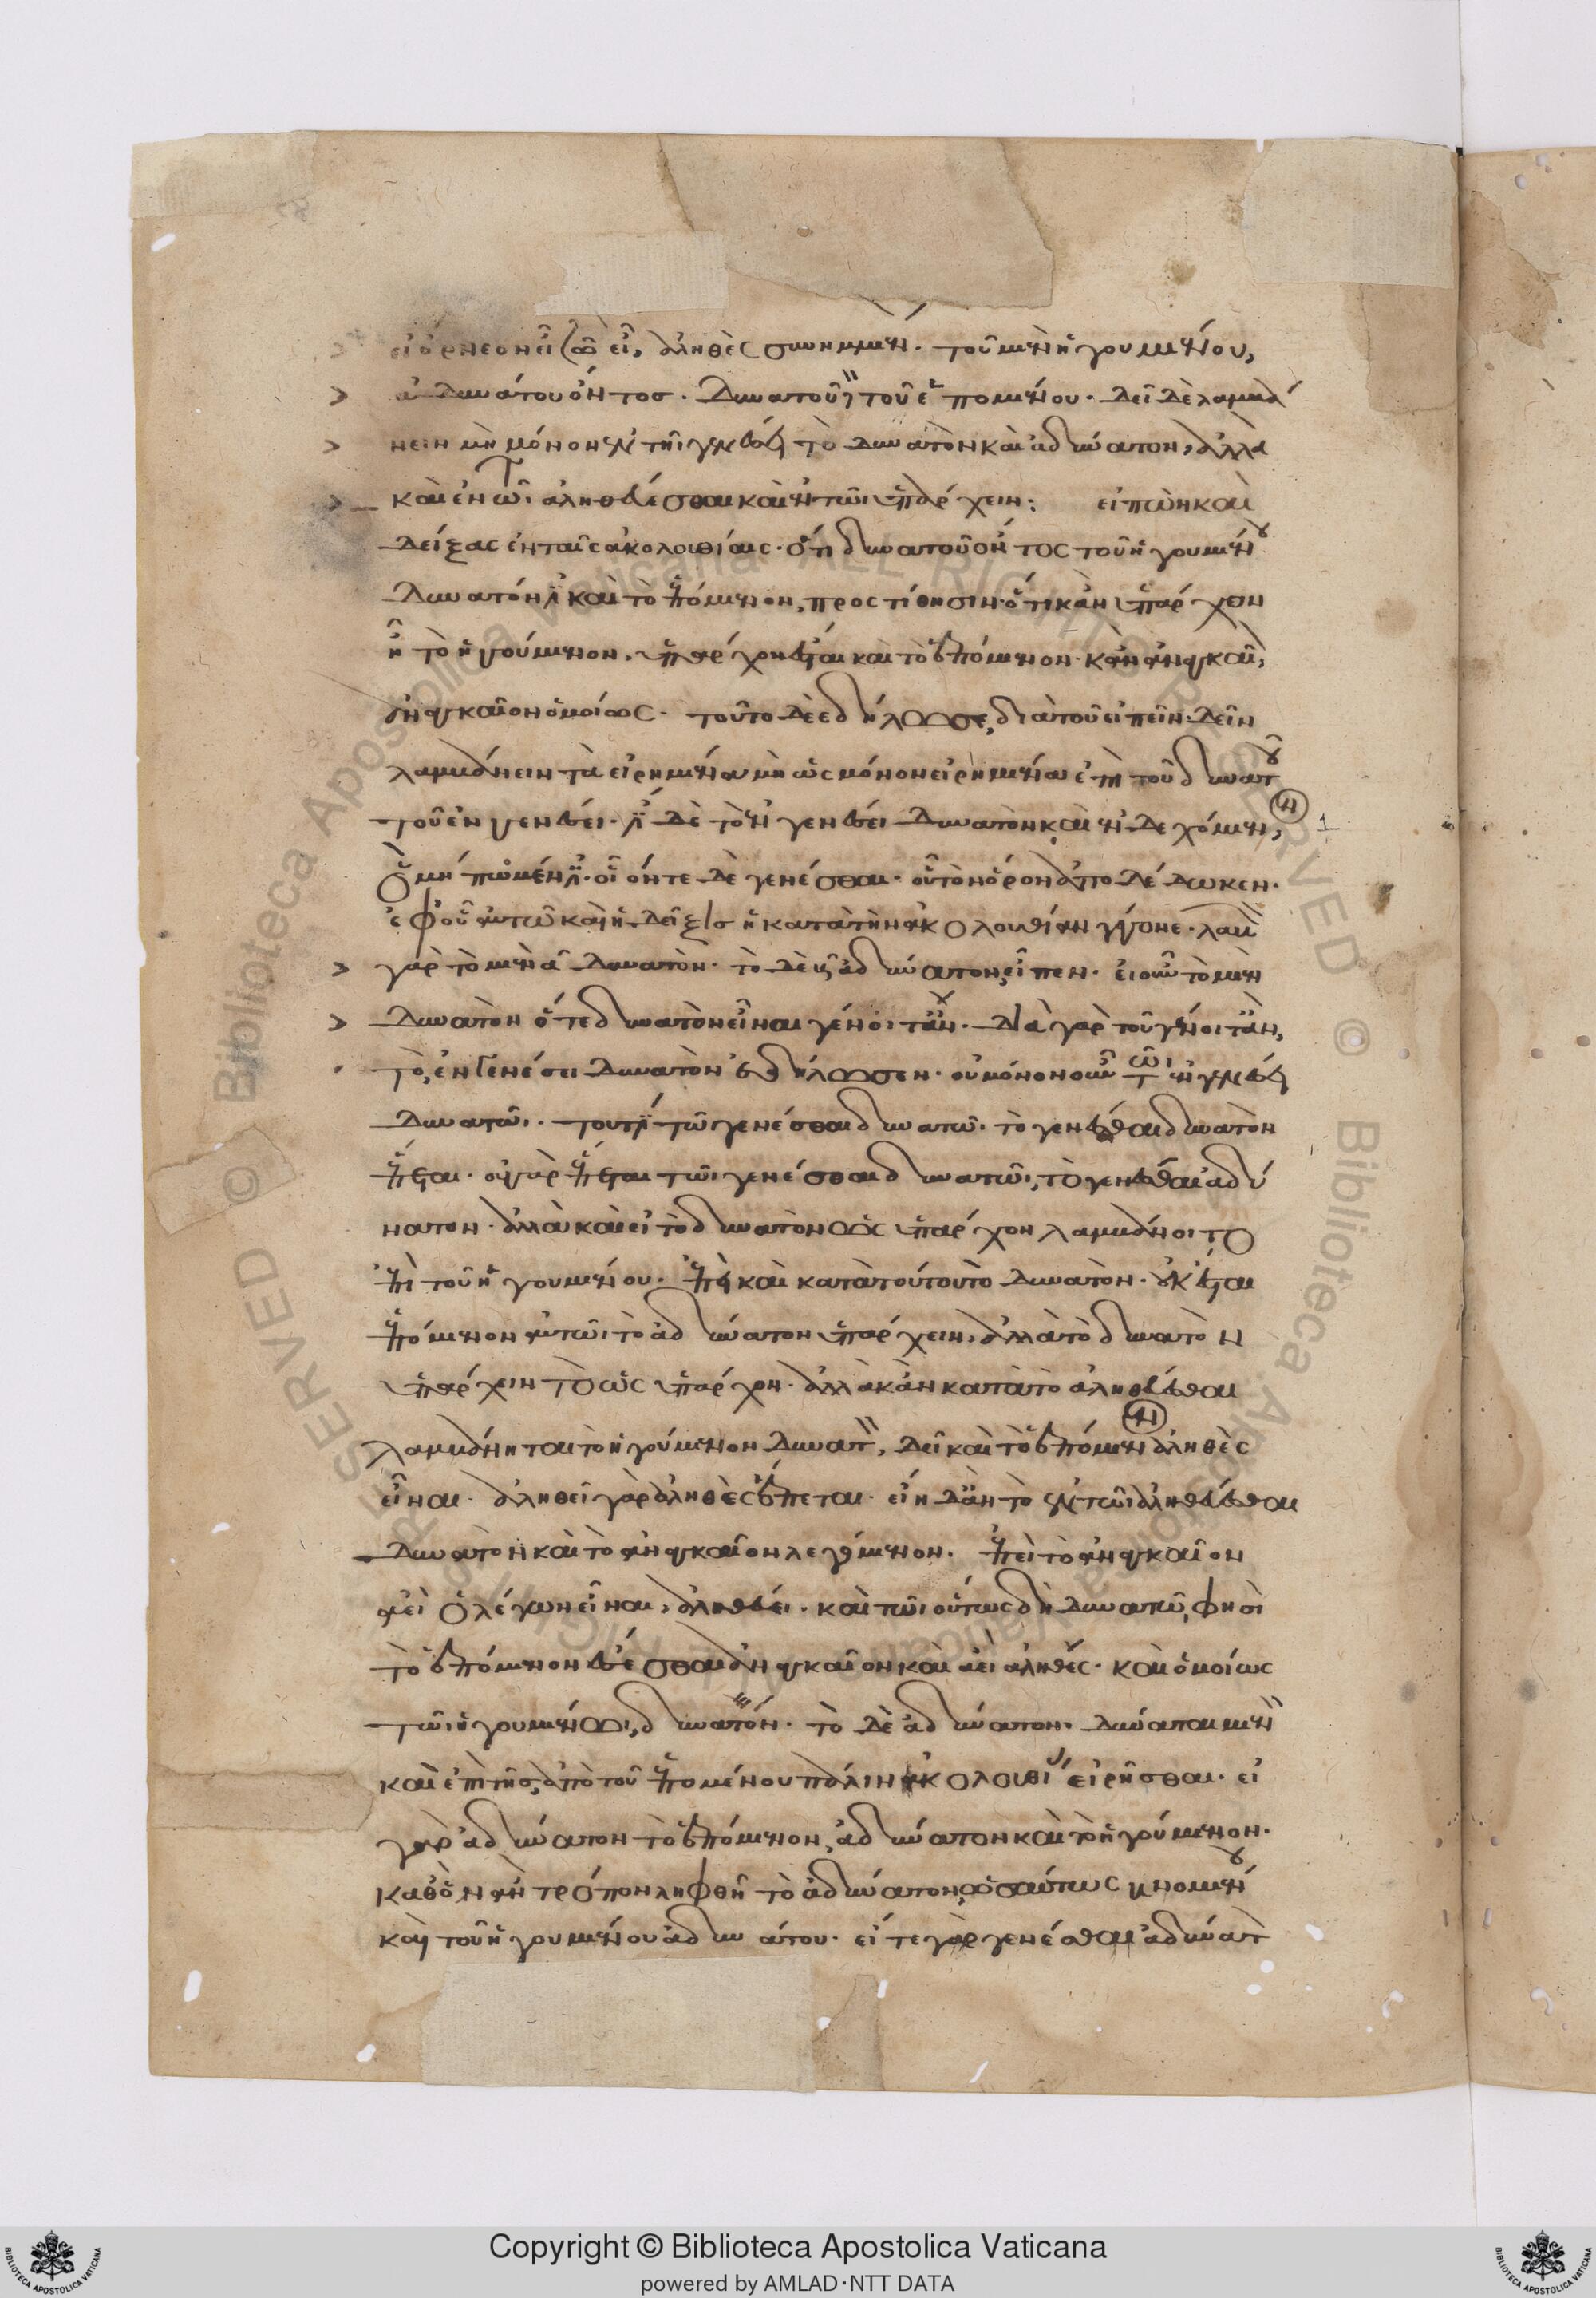 εἰ ὄρνεον εἶ ζῷον εἶ, ἀληθὲς συνημμένον. τοῦ μὲν ἡγουμένου,
ἀδυνάτου ὄντος. δυνατοῦ τοῦ ἑπομένου. δεῖ δὲ λαμβά
νειν μὴ μόνον ἐν τῆι γενέσει τὸ δυνατὸν καὶ ἀδύνατον, ἀλλὰ
καὶ ἐν τῶι ἀληθεύεσθαι καὶ ἐν τῶι ὑπάρχειν: εἰπὼν καὶ
δείξας ἐν ταῖς ἀκολουθίαις. ὅτι δυνατοῦ ὄντος τοῦ ἡγουμένου
δυνατόν ἐστι καὶ τὸ ἑπόμενον, προστίθησιν. ὅτι κἂν ὑπάρχον
ἦ τὸ ἡγούμενον, ὑπάρχον ἔσται καὶ τὸ ἑπόμενον. κἂν ἀναγκαῖον,
ἀναγκαῖον ὁμοίως. τοῦτο δὲ ἐδήλωσε, διὰ τοῦ εἰπεῖν. δεῖν
λαμβάνειν τὰ εἰρημένα μὴ ὡς μόνον εἰρημένα ἐπὶ τοῦ δυνατοῦ
τοῦ ἐν γενέσει. ἔστι δὲ τὸ ἐν γενέσει δυνατὸν καὶ ἐνδεχόμενον,
ὃ μή πω μέν ἐστι. οἷόν τε δὲ γενέσθαι. οὗ τὸν ὅρον ἀποδέδωκεν.
ἐφ' οὗ αὐτῶ καὶ ἡ δεῖξις ἡ κατὰ τὴν ἀκολουθίαν γέγονε. λαμβάνει
γὰρ τὸ μὲν α δυνατὸν. τὸ δὲ β ἀδύνατον, εἶπεν. εἰ οὖν τὸ μὲν
δυνατὸν ὅτε δυνατὸν εἶναι γένοιτ' ἄν. διὰ γὰρ τοῦ γένοιτ' ἄν,
τὸ, ἐν γενέσει δυνατὸν ἐδήλωσεν. οὐ μόνον οὖν τῶι ἐν γενέσει
δυνατῶι. τουτέστι τῶ γενέσθαι δυνατῶ. τὸ γενέσθαι δυνατὸν
ἕπεται. οὐ γὰρ ἕπεται τῶι γενέσθαι δυνατῶι, τὸ γενέσθαι ἀδύ
νατον. ἀλλὰ καὶ εἰ τὸ δυνατὸν ὡς ὑπάρχον λαμβάνοιτο
ἐπὶ τοῦ ἡγουμένου. ἐπεὶ καὶ κατὰ τούτου τὸ δυνατὸν. οὐκ ἔσται
ἑπόμενον αὐτῶι τὸ ἀδύνατον ὑπάρχειν, ἀλλὰ τὸ δυνατὸν
ὑπάρχειν τὸ ὡς ὑπάρχον. ἀλλὰ κἂν κατὰ τὸ ἀληθεύεσθαι
λαμβάνηται τὸ ἡγούμενον δυνατὸν, δεῖ καὶ τὸ ἑπόμενον ἀληθὲς
εἶναι. ἀληθεῖ γὰρ ἀληθὲς ἕπεται. εἴη δ' ἂν τὸ ἐν τῶι ἀληθεύεσθαι
δυνατὸν καὶ τὸ ἀναγκαῖον λεγόμενον. ἐπεὶ τὸ ἀναγκαῖον
ἀεὶ ὁ λέγων εἶναι, ἀληθεύει. καὶ τῶι οὕτως δὴ δυνατῶ, φησὶ
τὸ ἑπόμενον ἔσεσθαι ἀναγκαῖον καὶ ἀεὶ ἀληθές. καὶ ὁμοίως
τῶι ἡγουμένωι, δυνατόν. τὸ δὲ ἀδύνατον. δύναται μὲν
καὶ ἐπὶ τῆς ἀπὸ τοῦ ἑπομένου πάλιν ἀκολουθίας εἰρῆσθαι. εἰ
γὰρ ἀδύνατον τὸ ἑπόμενον, ἀδύνατον καὶ τὸ ἡγούμενον.
καθ' ὃν ἂν τρόπον ληφθῆ τὸ ἀδύνατον, ὡσαύτως γινομένου
καὶ τοῦ ἡγουμένου ἀδυνάτου. εἴτε γὰρ γενέσθαι ἀδύνατον